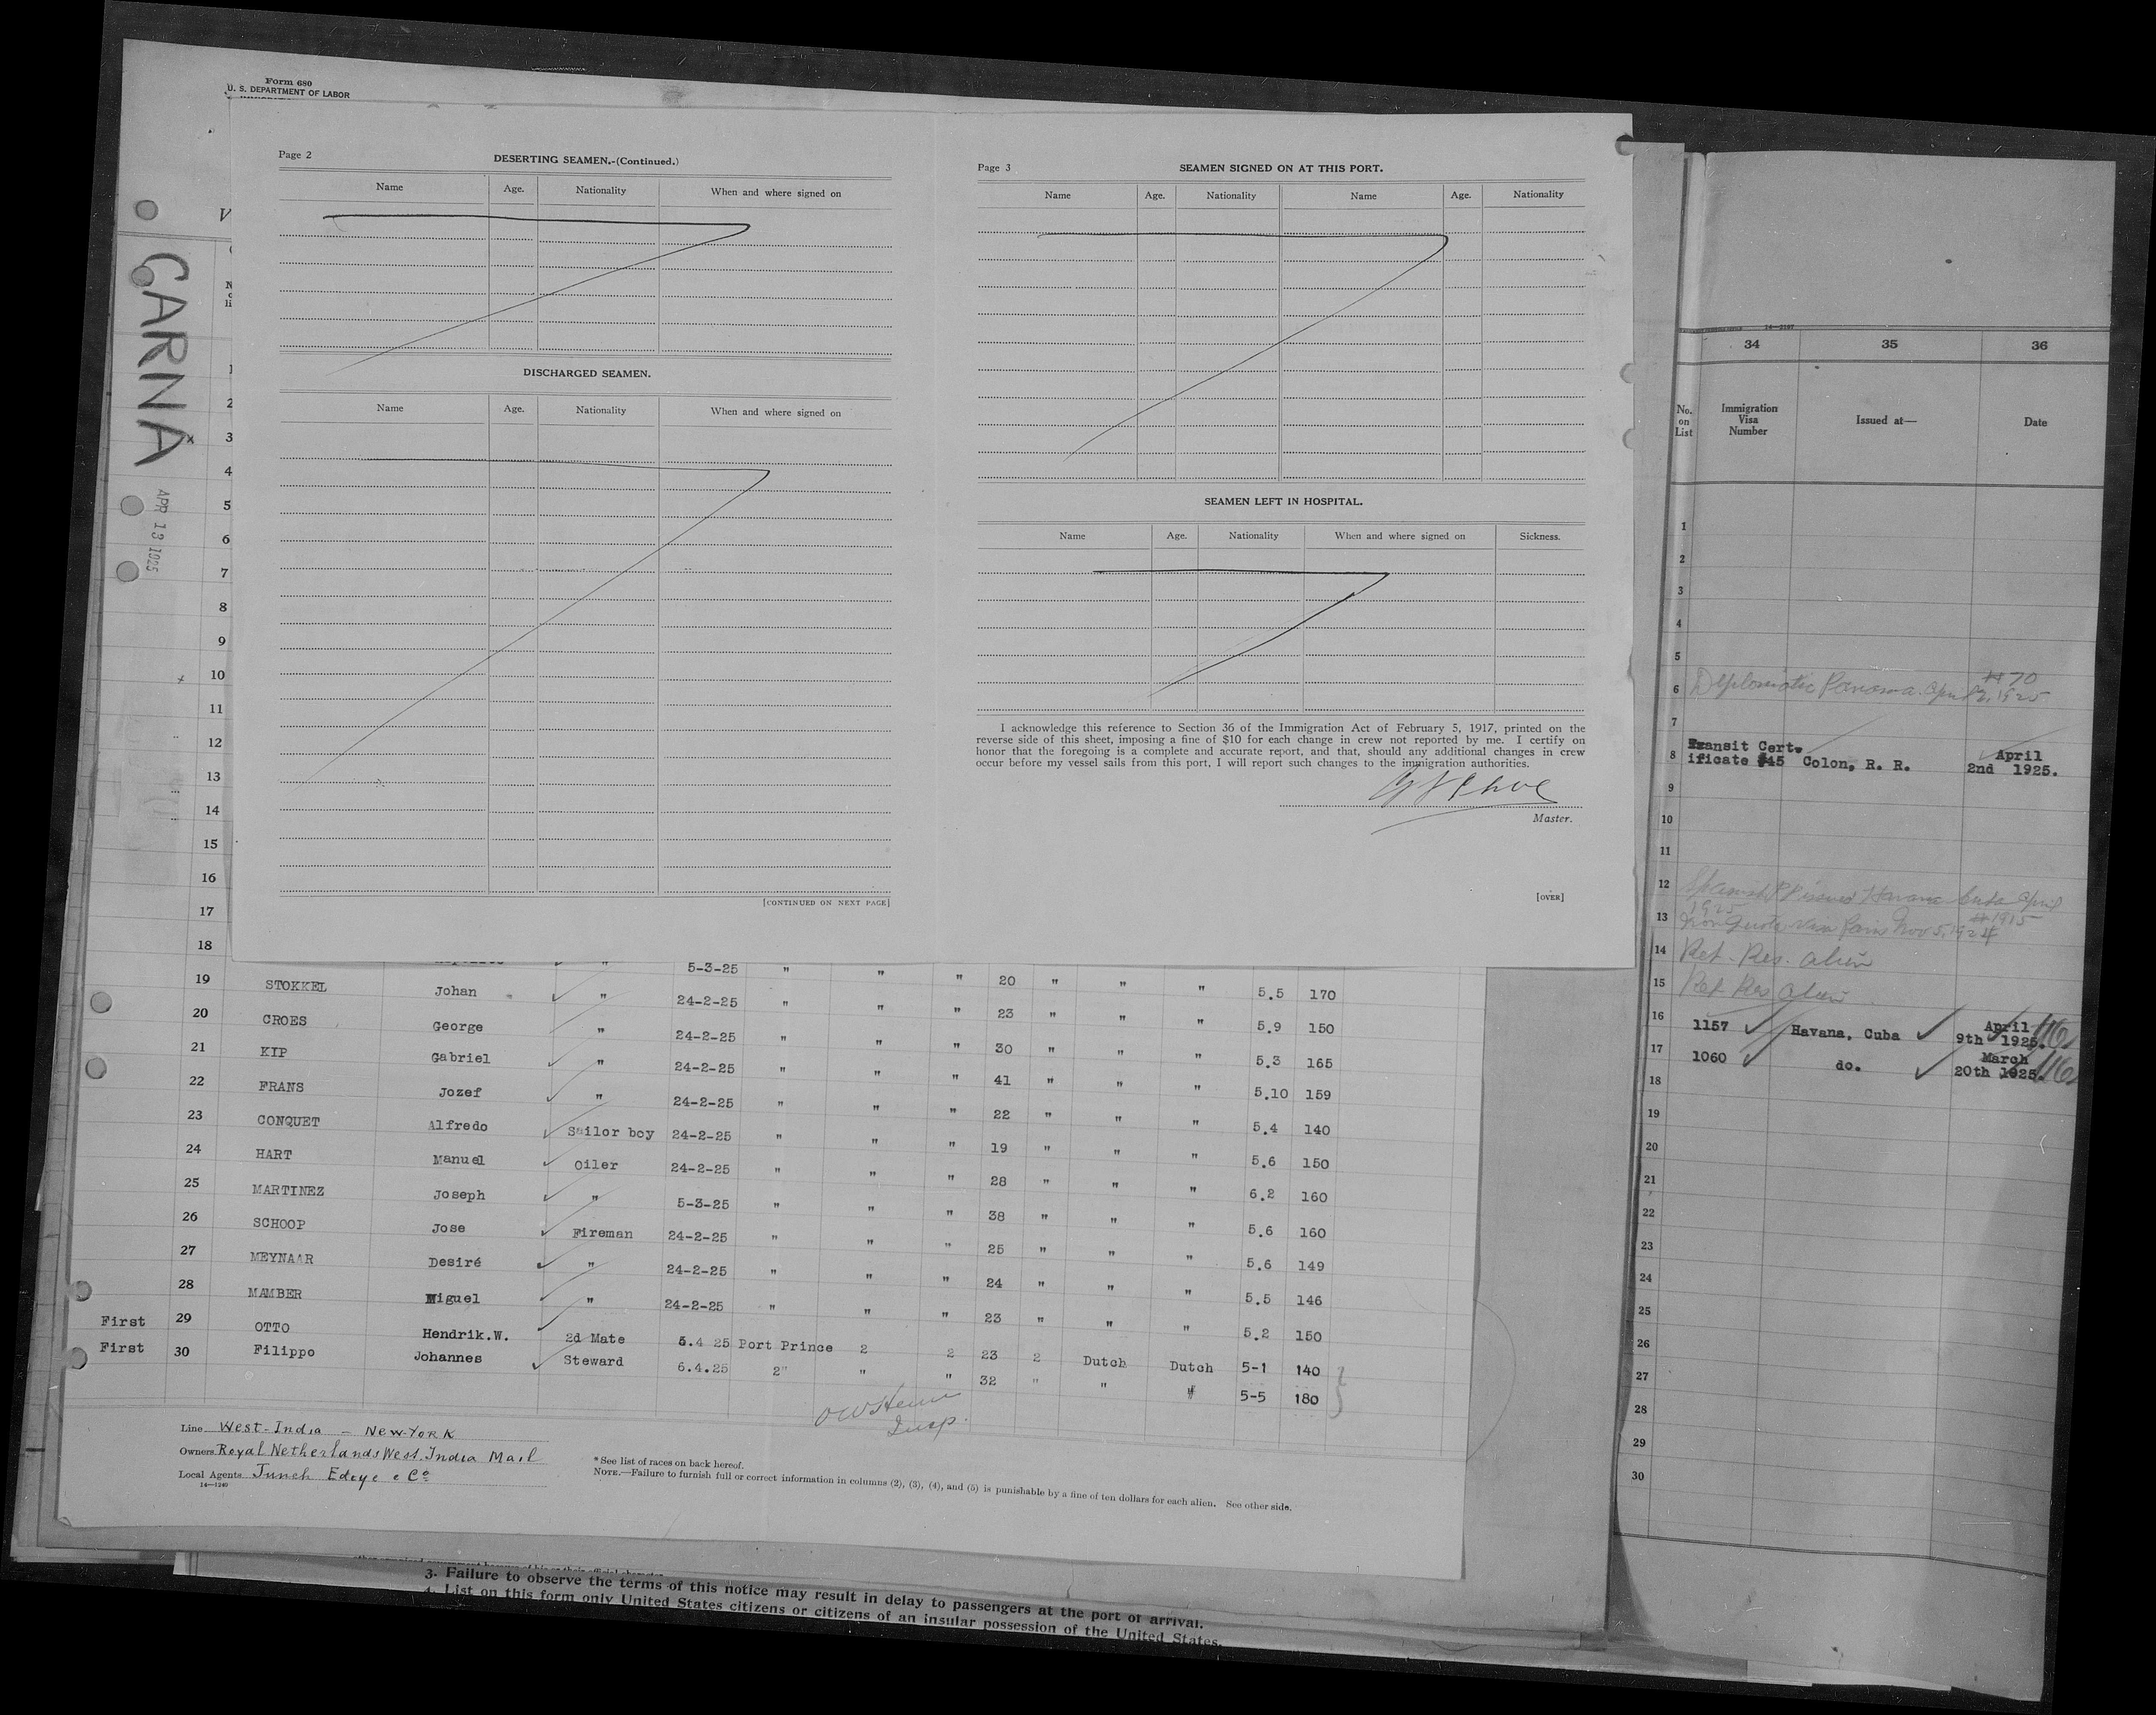 Form 680
U. S. DEPARTMENT OF LABOR
V
CARNA
APR 13 1925
Page 2
DESERTING SEAMEN.-(Continued.)
Name Age. Nationality When and where signed on
DISCHARGED SEAMEN.
Name Age. Nationality When and where signed on
[CONTINUED ON NEXT PAGE]
Page 3
SEAMEN SIGNED ON AT THIS PORT.
Name Age. Nationality Name Age. Nationality
SEAMEN LEFT IN HOSPITAL.
Name Age. Nationality When and where signed on Sickness.
I acknowledge this reference to Section 36 of the Immigration Act of February 5, 1917, printed on the
reverse side of this sheet, imposing a fine of $10 for each change in crew not reported by me. I certify on
honor that the foregoing is a complete and accurate report, and that, should any additional changes in crew
occur before my vessel sails from this port, I will report such changes to the immigration authorities.
Master.
[OVER]
1
2
x 3
4
5
6
7
8
9
10
11
12
13
14
15
16
17
18
" 5-3-25 " " " 20 " " " 5.5 170
19 STOKKEL Johan " 24-2-25 " " " 23 " " " 5.9 150
20 CROES George " 24-2-25 " " " 30 " " " 5.3 165
21 KIP Gabriel " 24-2-25 " " " 41 " " " 5.10 159
22 FRANS Jozef " 24-2-25 " " " 22 " " " 5.4 140
23 CONQUET Alfredo Sailor boy 24-2-25 " " " 19 " " " 5.6 150
24 HART Manuel Oiler 24-2-25 " " " 28 " " " 6.2 160
25 MARTINEZ Joseph " 5-3-25 " " " 38 " " " 5.6 160
26 SCHOOP Jose Fireman 24-2-25 " " " 25 " " " 5.6 149
27 MEYNAAR Desiré " 24-2-25 " " " 24 " " " 5.5 146
28 MAMBER Miguel " 24-2-25 " " " 23 " " " 5.2 150
First 29 OTTO Hendrik.W. 2d Mate 5.4 25 Port Prince 2 2 23 2 Dutch Dutch 5-1 140
First 30 Filippo Johannes Steward 6.4.25 2" " " 32 " " " 5-5 180
Insp.
Line West-India - New-York
Owners Royal Netherlands West. India Mail
Local Agents Funch Edeye & Co
14—1240
* See list of races on back hereof.
NOTE.—Failure to furnish full or correct information in columns (2), (3), (4), and (5) is punishable by a fine of ten dollars for each alien. See other side.
3. Failure to observe the terms of this notice may result in delay to passengers at the port of arrival.
4. List on this form only United States citizens or citizens of an insular possession of the United States.
14—2107
34 35 36
No. on List Immigration Visa Number Issued at— Date
1
2
3
4
5
#70
6 Diplomatic Panama. April 2, 1925
7
8 Transit Cert. ificate #45 Colon, R. R. April 2nd 1925.
9
10
11
12 Spanish PP issued Havana Cuba April
1925 #1915
13 Non Quota Visa Paris Nov 5, 1924
14 Ret. Res. Alien
15 Ret Res Alien
16 1157 Havana, Cuba April 9th 1925.
17 1060 do. March 20th 1925.
18
19
20
21
22
23
24
25
26
27
28
29
30